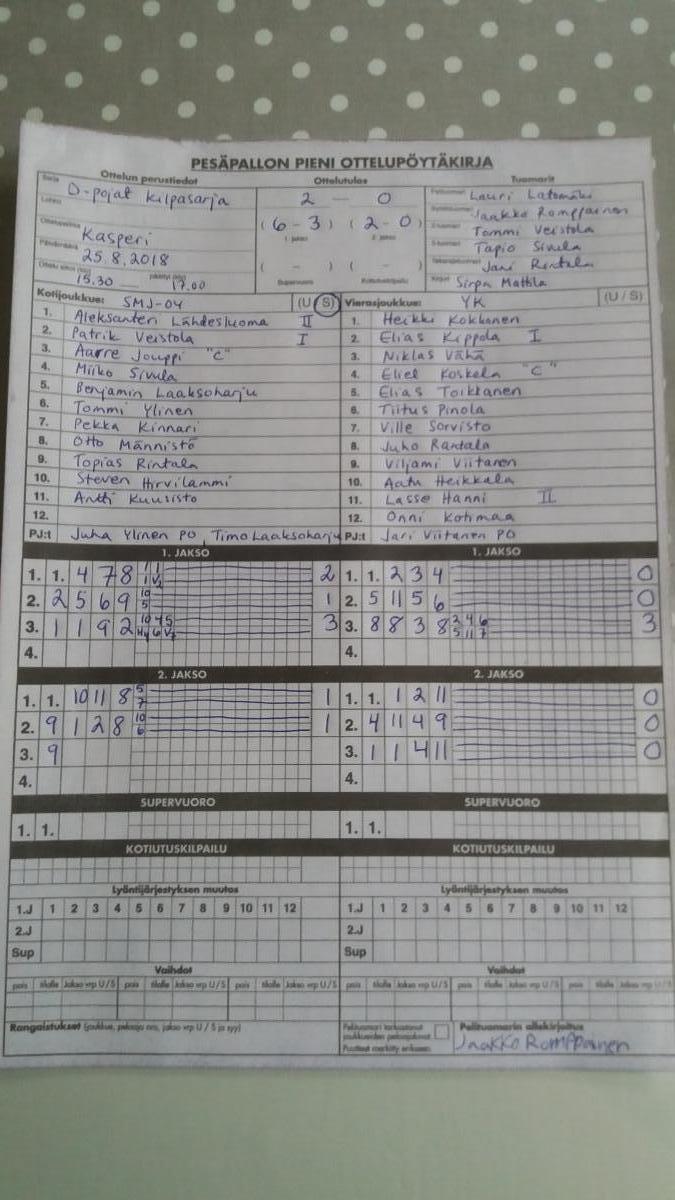 PESÄPALLON PIENI OTTELUPÖYTÄKIRJA
Ottelun perustiedot Ottelutulos Tuomarit
Sarja D-pojat kilpasarja 2 - 0 Lauri Latomäki
Lohko (6 - 3) (2 - 0) Jaakko Romppainen
1. jakso 2. jakso Tommi Veistola
Ottelupaikka Kasperi Tapio Sivula
Päivämäärä 25.8.2018 ( - ) ( - ) Jani Rintala
15.30 17.00 Supervuoro Kotiutuskilpailu Sirpa Mattila
Kotijoukkue: SMJ-04 (U/S) Vierasjoukkue: YK (U/S)
1. Aleksanteri Lähdesluoma II 1. Heikki Kokkonen
2. Patrik Veistola I 2. Elias Kippola I
3. Aarre Jouppi "C" 3. Niklas Vähä
4. Miiko Sivula 4. Eliel Koskela "C"
5. Benjamin Laaksoharju 5. Elias Toikkanen
6. Tommi Ylinen 6. Tiitus Pinola
7. Pekka Kinnari 7. Ville Sorvisto
8. Otto Männistö 8. Juho Rantala
9. Topias Rintala 9. Viljami Viitanen
10. Steven Hirvilammi 10. Aatu Heikkala
11. Antti Kuusisto 11. Lasse Hanni II
12. 12. Onni Kotimaa
PJ:t Juha Ylinen PO, Timo Laaksoharju PJ:t Jari Viitanen PO
1. JAKSO 1. JAKSO
1. 1. 4 7 8 2 1. 1. 2 3 4 0
2. 2 5 6 9 10 5 1 2. 5 11 5 6 0
3. 1 1 9 2 3 3. 8 8 3 8 2 4 6 5 11 7 3
4. 4.
2. JAKSO 2. JAKSO
1. 1. 10 11 8 5 7 1 1. 1. 1 2 11 0
2. 9 1 2 8 10 6 1 2. 4 11 4 9 0
3. 9 3. 1 1 4 11 0
4. 4.
SUPERVUORO SUPERVUORO
1. 1. 1. 1.
KOTIUTUSKILPAILU KOTIUTUSKILPAILU
Lyöntijärjestyksen muutos Lyöntijärjestyksen muutos
1.J 1 2 3 4 5 6 7 8 9 10 11 12 1.J 1 2 3 4 5 6 7 8 9 10 11 12
2.J 2.J
Sup Sup
Vaihdot Vaihdot
pois tilalle Jakso vrp U/S pois tilalle Jakso vrp U/S pois tilalle Jakso vrp U/S pois tilalle Jakso vrp U/S pois tilalle Jakso vrp U/S pois tilalle Jakso vrp U/S
Rangaistukset (joukkue, pelaaja nro, jakso vrp U/S ja syy) Pelituomari tarkastanut Pelituomarin allekirjoitus
joukkueiden pelaajakortit Jaakko Romppainen
Puutteet merkitty erikseen